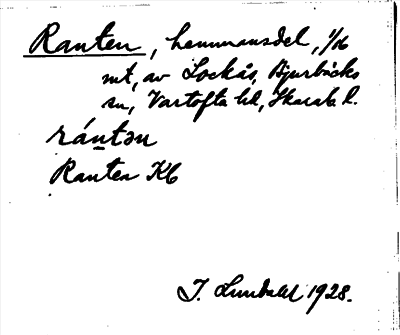 Ranten, hemmansdel, 1/16
mt, av Lockås, Bjurbäcks
sn, Vartofta hd, Skarab. l.
rántən
Ranten Kb
I. Lundahl 1928.